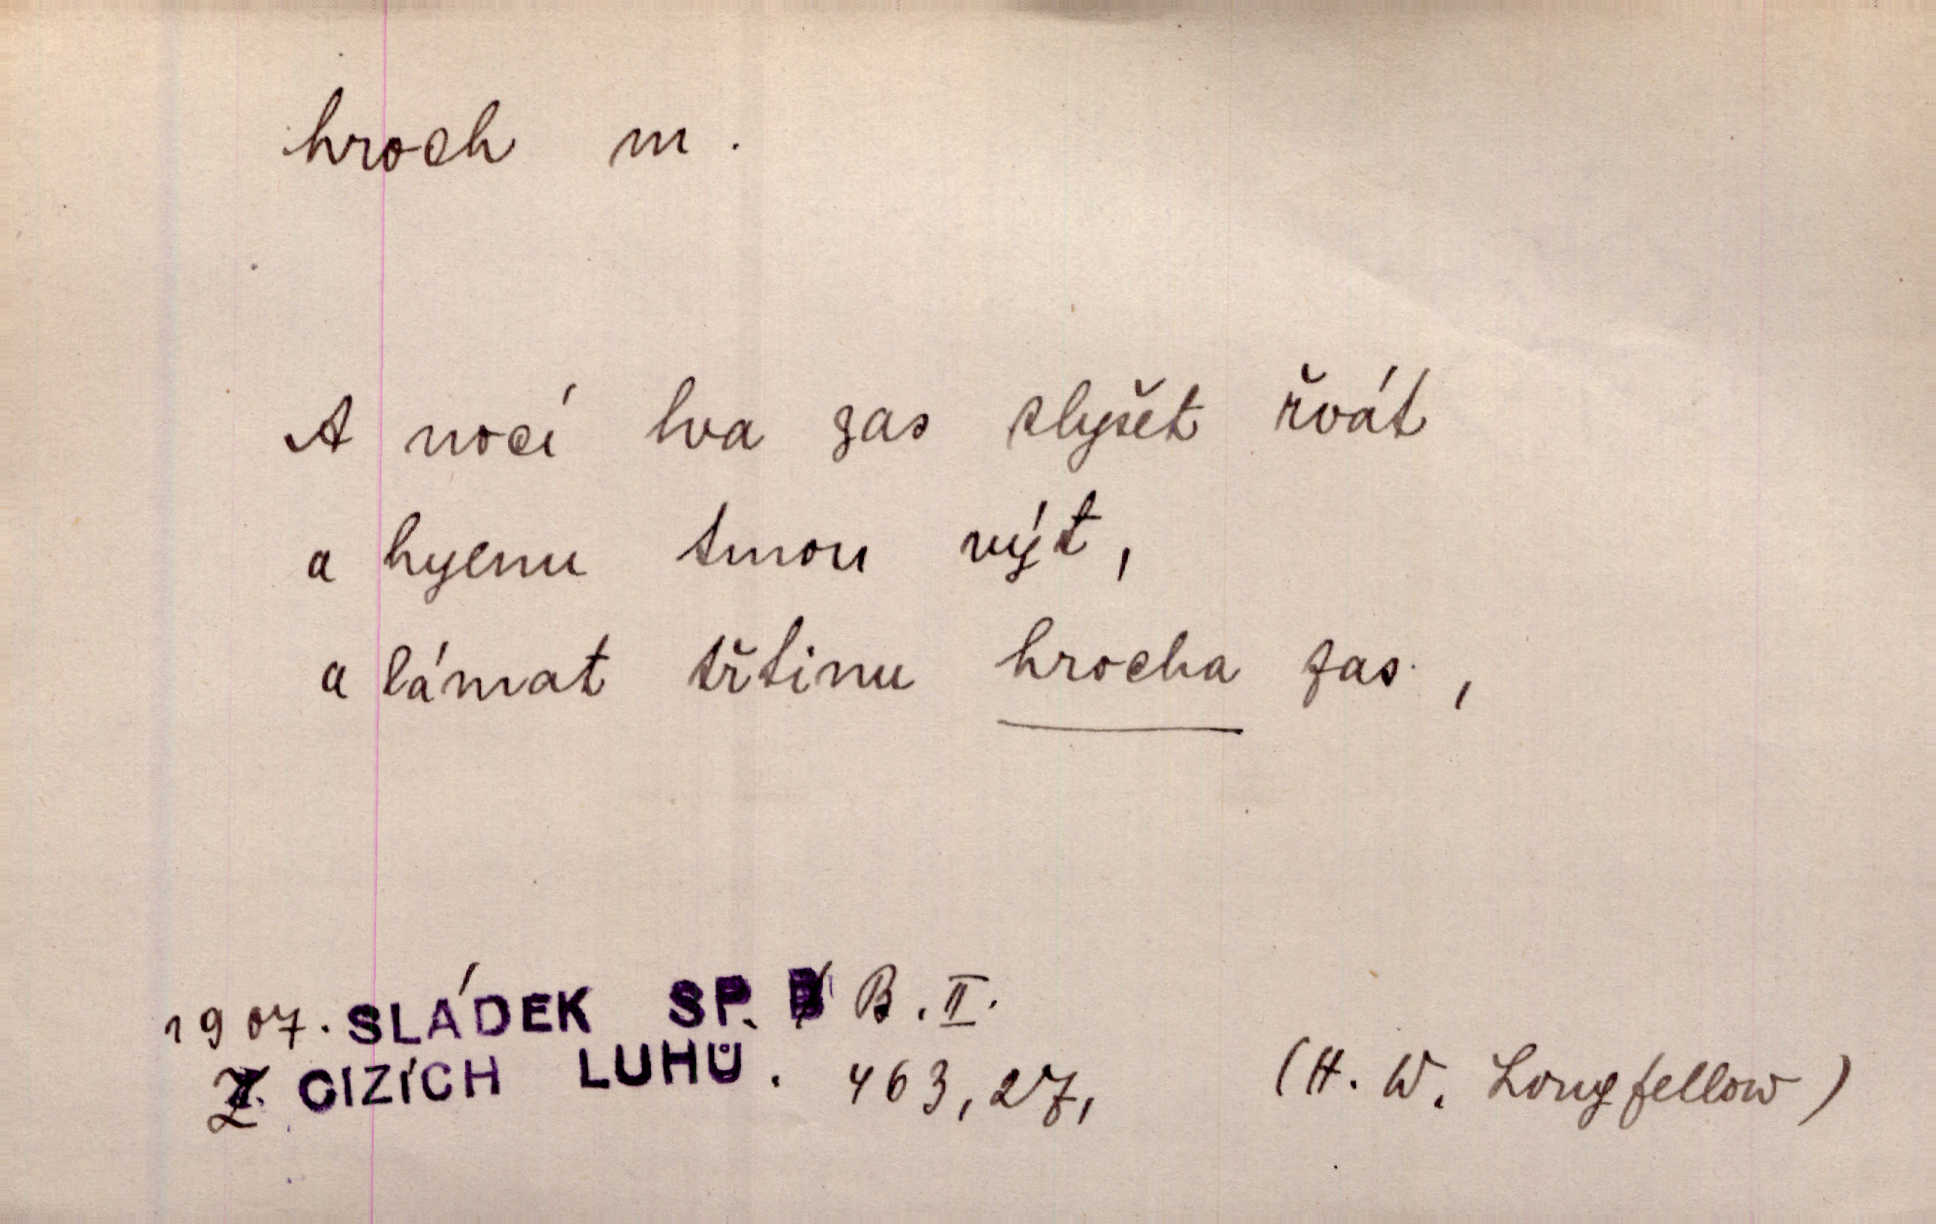 hroch m.
A nocí lva zas slyšet řvát
a hyenu tmou výt,
a lámat třtinu hrocha zas,
1907. SLÁDEK SP. B. II.
Z CIZÍCH LUHŮ. 463, 27, (H. W. Longfellow)